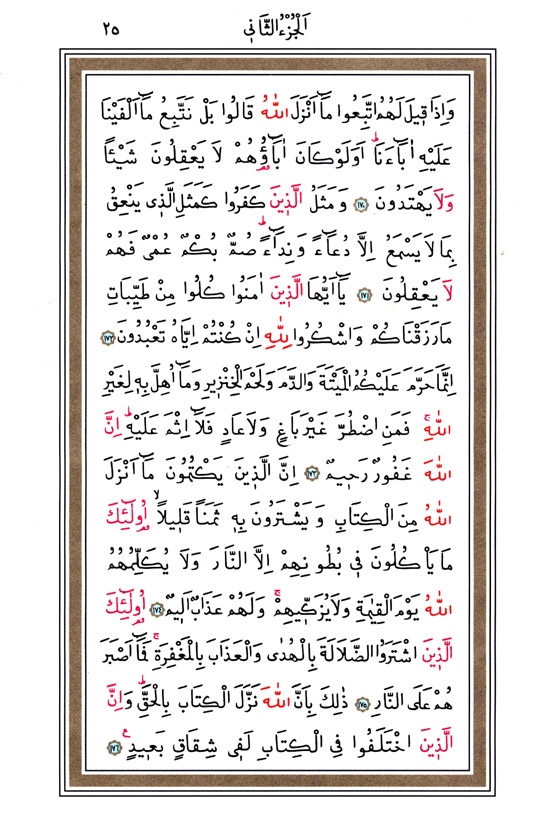 اَلْجُزْءُ الثَّانٖي
٢٥
وَاِذَا قٖيلَ لَهُمُ اتَّبِعُوا مَٓا اَنْزَلَ اللّٰهُ قَالُوا بَلْ نَتَّبِعُ مَٓا اَلْفَيْنَا
عَلَيْهِ اٰبَٓاءَنَاؕ اَوَلَوْ كَانَ اٰبَٓاؤُ۬هُمْ لَا يَعْقِلُونَ شَيْـًٔا
وَلَا يَهْتَدُونَ ﴿١٧٠﴾ وَمَثَلُ الَّذٖينَ كَفَرُوا كَمَثَلِ الَّذٖي يَنْعِقُ
بِمَا لَا يَسْمَعُ اِلَّا دُعَٓاءً وَنِدَٓاءًؕ صُمٌّ بُكْمٌ عُمْيٌ فَهُمْ
لَا يَعْقِلُونَ ﴿١٧١﴾ يَٓا اَيُّهَا الَّذٖينَ اٰمَنُوا كُلُوا مِنْ طَيِّبَاتِ
مَا رَزَقْنَاكُمْ وَاشْكُرُوا لِلّٰهِ اِنْ كُنْتُمْ اِيَّاهُ تَعْبُدُونَ ﴿١٧٢﴾
اِنَّمَا حَرَّمَ عَلَيْكُمُ الْمَيْتَةَ وَالدَّمَ وَلَحْمَ الْخِنْزٖيرِ وَمَٓا اُهِلَّ بِهٖ لِغَيْرِ
اللّٰهِۚ فَمَنِ اضْطُرَّ غَيْرَ بَاغٍ وَلَا عَادٍ فَلَٓا اِثْمَ عَلَيْهِؕ اِنَّ
اللّٰهَ غَفُورٌ رَحٖيمٌ ﴿١٧٣﴾ اِنَّ الَّذٖينَ يَكْتُمُونَ مَٓا اَنْزَلَ
اللّٰهُ مِنَ الْكِتَابِ وَيَشْتَرُونَ بِهٖ ثَمَنًا قَلٖيلًاۙ اُو۬لٰٓئِكَ
مَا يَأْكُلُونَ فٖي بُطُونِهِمْ اِلَّا النَّارَ وَلَا يُكَلِّمُهُمُ
اللّٰهُ يَوْمَ الْقِيٰمَةِ وَلَا يُزَكّٖيهِمْۚ وَلَهُمْ عَذَابٌ اَلٖيمٌ ﴿١٧٤﴾ اُو۬لٰٓئِكَ
الَّذٖينَ اشْتَرَوُا الضَّلَالَةَ بِالْهُدٰى وَالْعَذَابَ بِالْمَغْفِرَةِۚ فَمَٓا اَصْبَرَ
هُمْ عَلَى النَّارِ ﴿١٧٥﴾ ذٰلِكَ بِاَنَّ اللّٰهَ نَزَّلَ الْكِتَابَ بِالْحَقِّؕ وَاِنَّ
الَّذٖينَ اخْتَلَفُوا فِي الْكِتَابِ لَفٖي شِقَاقٍ بَعٖيدٍࣖ ﴿١٧٦﴾